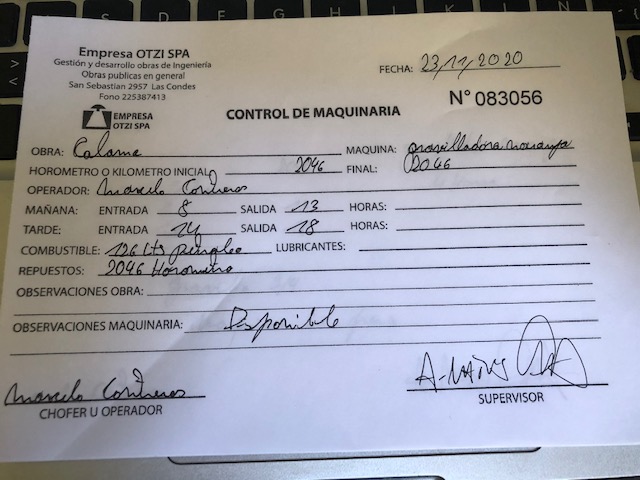 Empresa OTZI SPA
Gestión y desarrollo obras de Ingeniería
Obras publicas en general
San Sebastian 2957 Las Condes
Fono 225387413
FECHA: 23/11/2020
EMPRESA
OTZI SPA
CONTROL DE MAQUINARIA
N° 083056
OBRA: Calama MAQUINA:
HOROMETRO O KILOMETRO INICIAL: 2046 FINAL:
OPERADOR: Marcelo Cordero
MAÑANA: ENTRADA 8 SALIDA 13 HORAS:
TARDE: ENTRADA 14 SALIDA 18 HORAS:
COMBUSTIBLE: LUBRICANTES:
REPUESTOS: 2046 Horometro
OBSERVACIONES OBRA:
OBSERVACIONES MAQUINARIA: Disponible
Marcelo Cordero
CHOFER U OPERADOR
SUPERVISOR